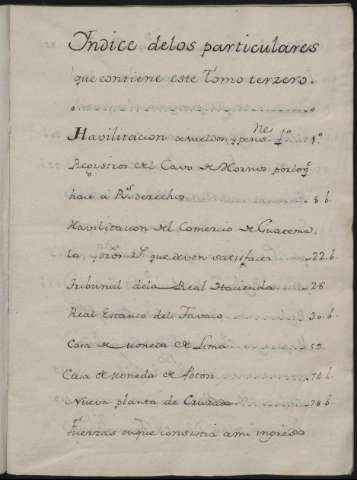 Indice de los particulares
que contiene este Tomo terzero.
Havilitacion de sueldos y pensnes 1o 1o
Registros del Cavo de Hornos por lo q
hace á Rs derechos 8 b.
Havilitacion del Comercio de Guatema
la que deven satisfacer 22 b.
Tribunal de la Real Hacienda 26
Real Estanco del Tavaco 30 b.
Casa de Moneda de Lima 59
Casa de Moneda de Potosi b.
Nueva planta de Cruzada 78 b.
Fuerzas en que consistia a mi ingreso